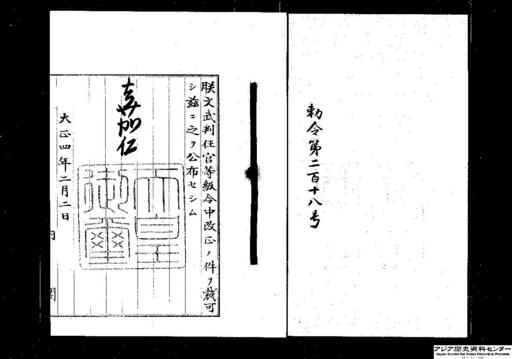 勅令第二百十八号
朕文武判任官等級令中改正ノ件ヲ裁可
シ茲ニ之ヲ公布セシム
嘉仁
天皇御璽
大正四年二月二日
内閣
アジア歴史資料センター
Japan Center for Asian Historical Records